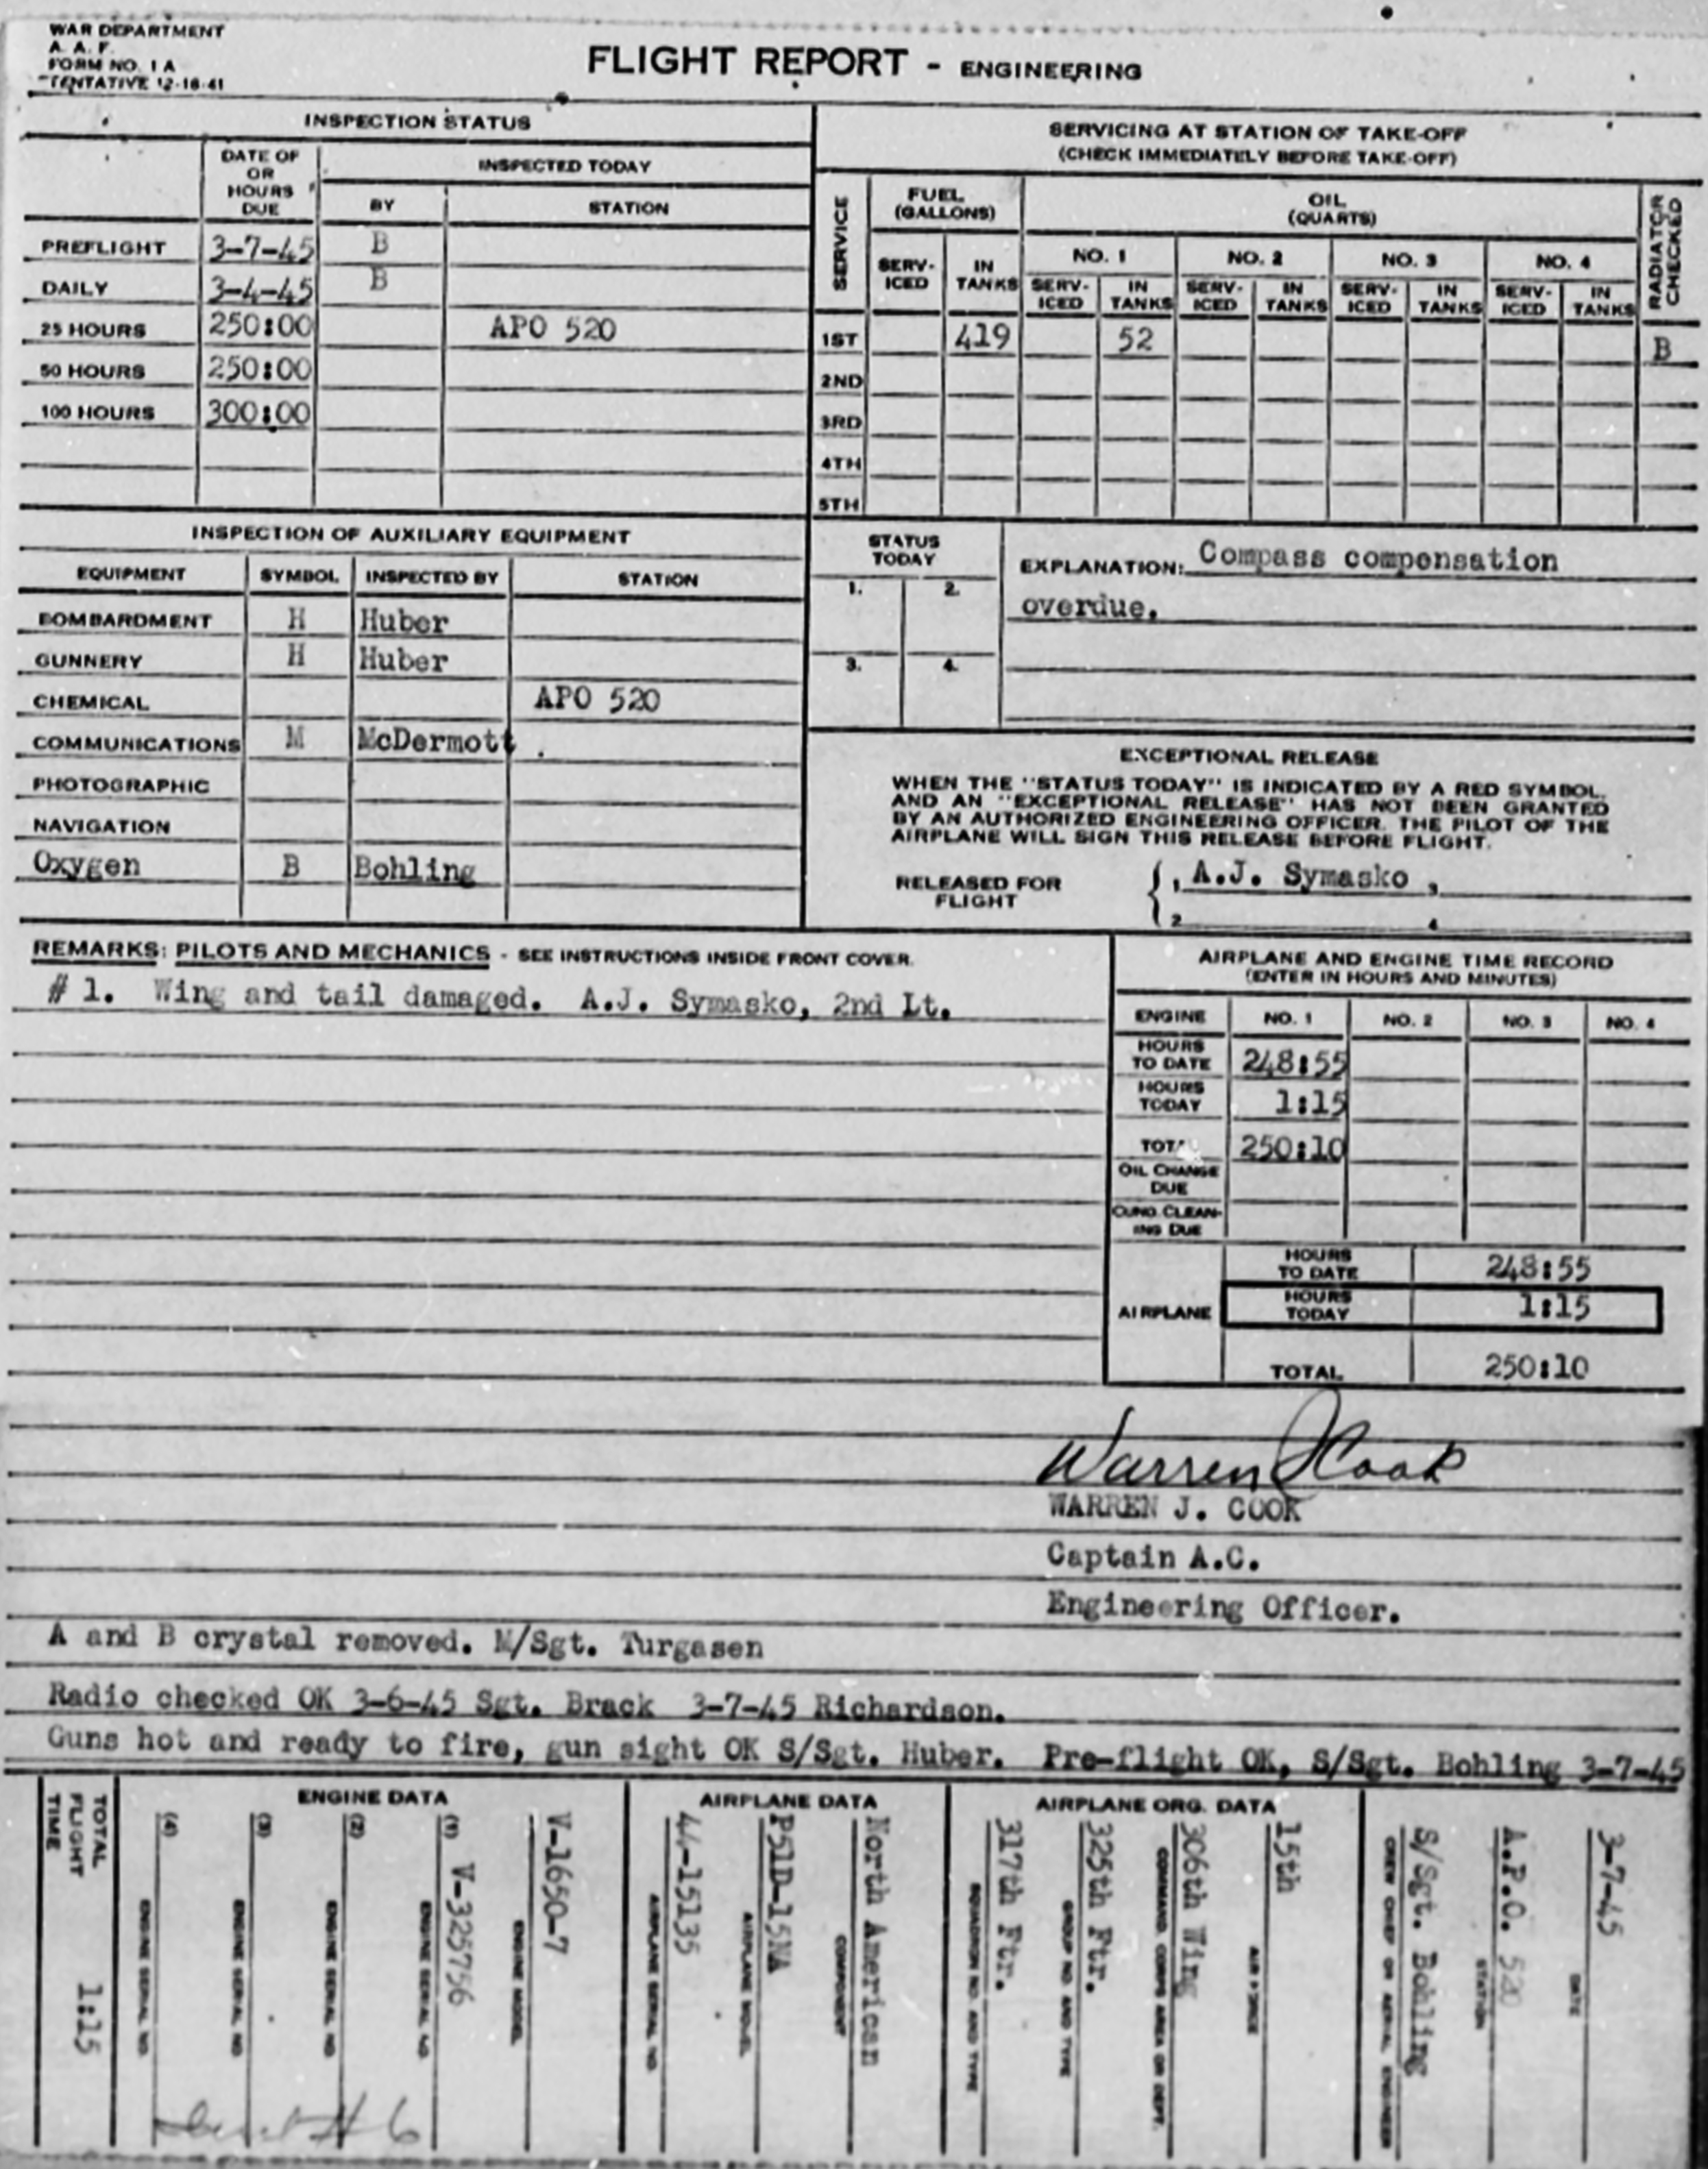 WAR DEPARTMENT
A. A. F.
FORM NO. 1 A
TENTATIVE 12-16-41
FLIGHT REPORT - ENGINEERING
INSPECTION STATUS
DATE OF OR HOURS DUE
INSPECTED TODAY
BY STATION
PREFLIGHT 3-7-45 B
DAILY 3-4-45 B
25 HOURS 250:00 APO 520
50 HOURS 250:00
100 HOURS 300:00
SERVICING AT STATION OF TAKE-OFF
(CHECK IMMEDIATELY BEFORE TAKE-OFF)
SERVICE
FUEL (GALLONS)
OIL (QUARTS)
RADIATOR CHECKED
NO. 1 NO. 2 NO. 3 NO. 4
SERV-ICED IN TANKS SERV-ICED IN TANKS SERV-ICED IN TANKS SERV-ICED IN TANKS SERV-ICED IN TANKS
1ST 419 52 B
2ND
3RD
4TH
5TH
INSPECTION OF AUXILIARY EQUIPMENT
EQUIPMENT SYMBOL INSPECTED BY STATION
BOMBARDMENT H Huber
GUNNERY H Huber
CHEMICAL APO 520
COMMUNICATIONS M McDermott
PHOTOGRAPHIC
NAVIGATION
Oxygen B Bohling
STATUS TODAY
1. 2.
3. 4.
EXPLANATION: Compass compensation
overdue.
EXCEPTIONAL RELEASE
WHEN THE "STATUS TODAY" IS INDICATED BY A RED SYMBOL,
AND AN "EXCEPTIONAL RELEASE" HAS NOT BEEN GRANTED
BY AN AUTHORIZED ENGINEERING OFFICER, THE PILOT OF THE
AIRPLANE WILL SIGN THIS RELEASE BEFORE FLIGHT.
RELEASED FOR FLIGHT
A.J. Symasko
2 4
REMARKS: PILOTS AND MECHANICS - SEE INSTRUCTIONS INSIDE FRONT COVER.
# 1. Wing and tail damaged. A.J. Symasko, 2nd Lt.
AIRPLANE AND ENGINE TIME RECORD
(ENTER IN HOURS AND MINUTES)
ENGINE NO. 1 NO. 2 NO. 3 NO. 4
HOURS TO DATE 248:55
HOURS TODAY 1:15
TOTAL 250:10
OIL CHANGE DUE
CUNO CLEAN-ING DUE
AIRPLANE
HOURS TO DATE 248:55
HOURS TODAY 1:15
TOTAL 250:10
Warren J Cook
WARREN J. COOK
Captain A.C.
Engineering Officer.
A and B crystal removed. M/Sgt. Turgasen
Radio checked OK 3-6-45 Sgt. Brack 3-7-45 Richardson.
Guns hot and ready to fire, gun sight OK S/Sgt. Huber. Pre-flight OK, S/Sgt. Bohling 3-7-45
TOTAL FLIGHT TIME 1:15
ENGINE DATA
(4) ENGINE SERIAL NO.
(3) ENGINE SERIAL NO.
(2) ENGINE SERIAL NO.
(1) V-325756 ENGINE SERIAL NO.
V-1650-7 ENGINE MODEL
AIRPLANE DATA
44-15135 AIRPLANE SERIAL NO.
P51D-15NA AIRPLANE MODEL
North American COMPONENT
AIRPLANE ORG. DATA
317th Ftr. SQUADRON NO. AND TYPE
325th Ftr. GROUP NO. AND TYPE
306th Wing COMMAND, CORPS AREA OR DEPT.
15th AIR FORCE
S/Sgt. Bohling CREW CHIEF OR AERIAL ENGINEER
A.P.O. 520 STATION
3-7-45 DATE
# 6